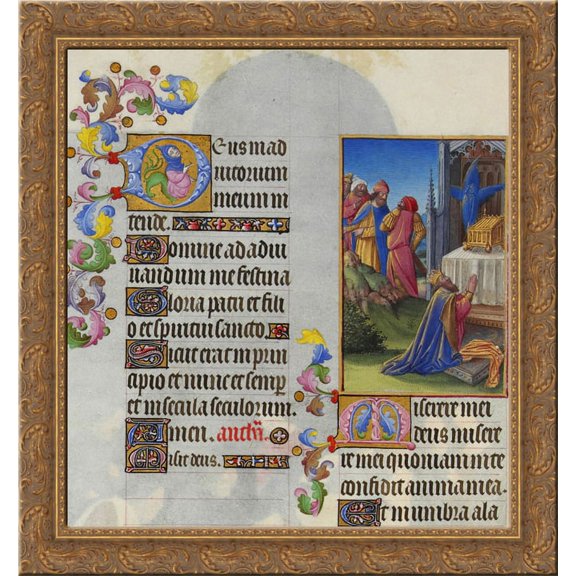 Deus in ad
iutorium
meum in
tende.
Domine ad adiu
uandum me festina
Gloria patri et fili
o et spiritui sancto
Sicut erat in prin
cipio et nunc et semp
et in secula seculorum.
Amen. anth.
Misit deus.
Miserere mei
deus misere
re mei quoniam in te
confidit anima mea.
Et in umbra ala